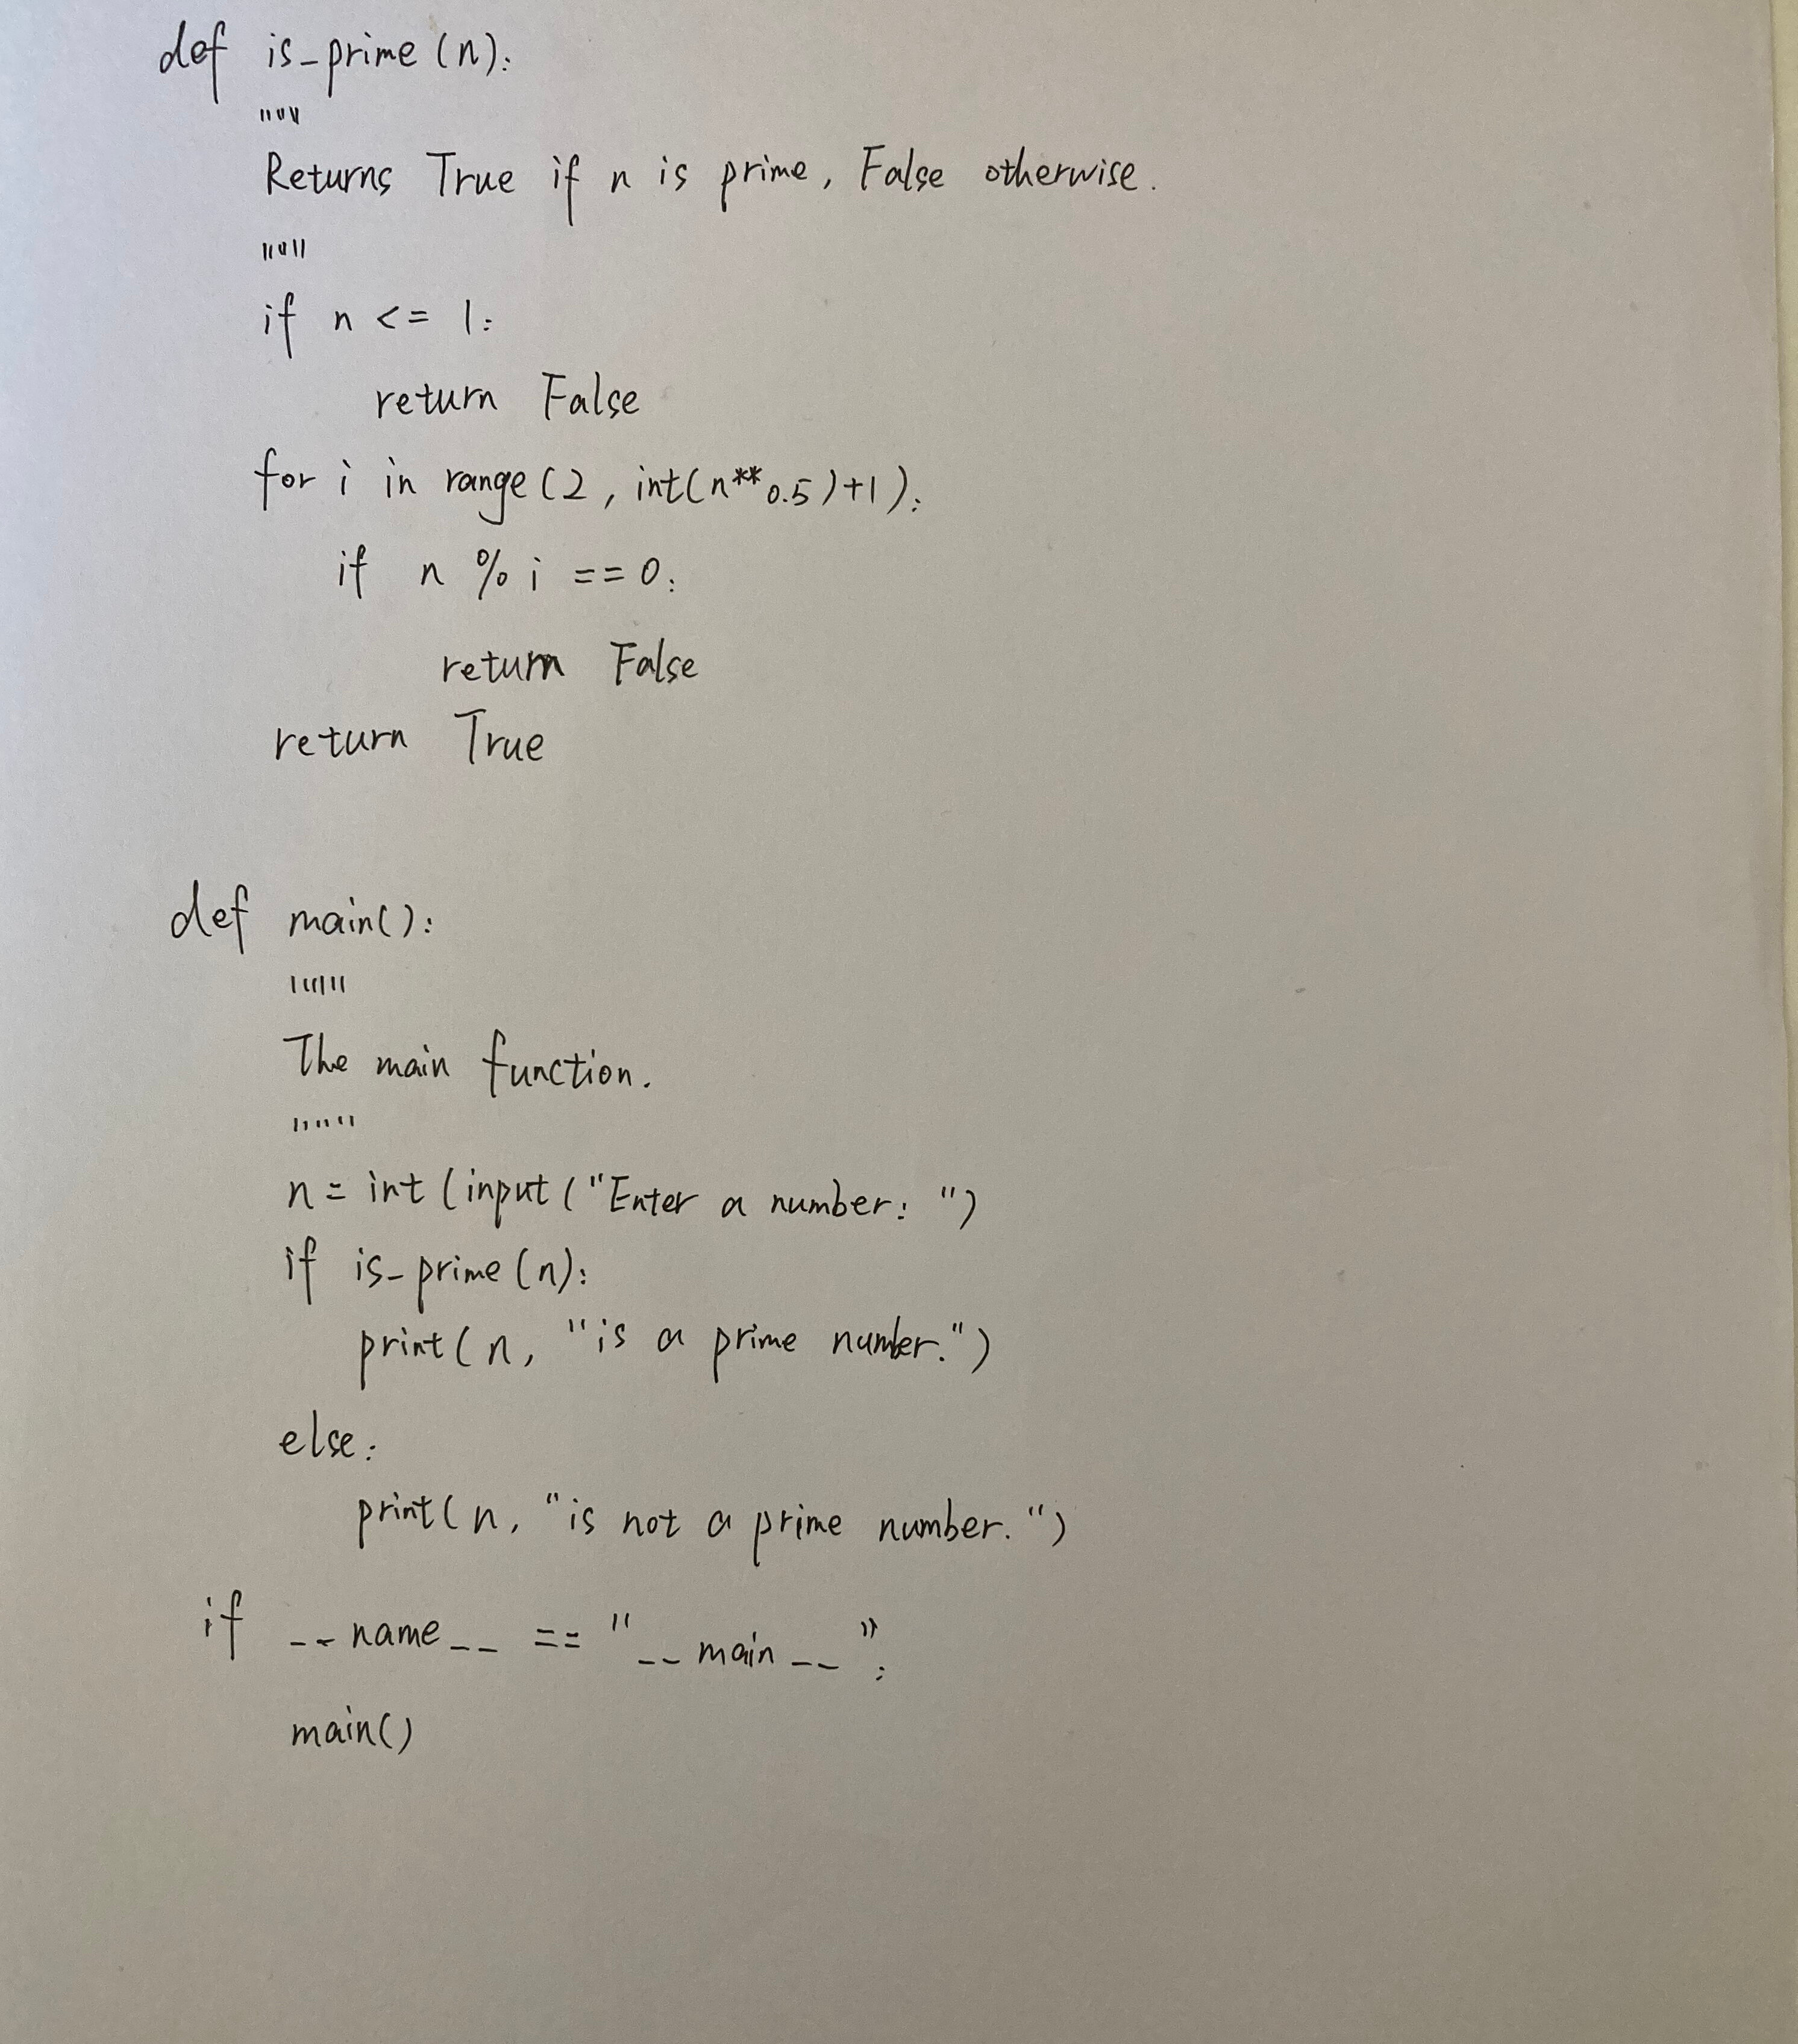 def is_prime(n):
"""
Returns True if n is prime, False otherwise.
"""
if n <= 1:
return False
for i in range(2, int(n**0.5)+1):
if n % i == 0:
return False
return True
def main():
"""
The main function.
"""
n = int(input("Enter a number: ")
if is_prime(n):
print(n, "is a prime number.")
else:
print(n, "is not a prime number.")
if __name__ == "__main__":
main()